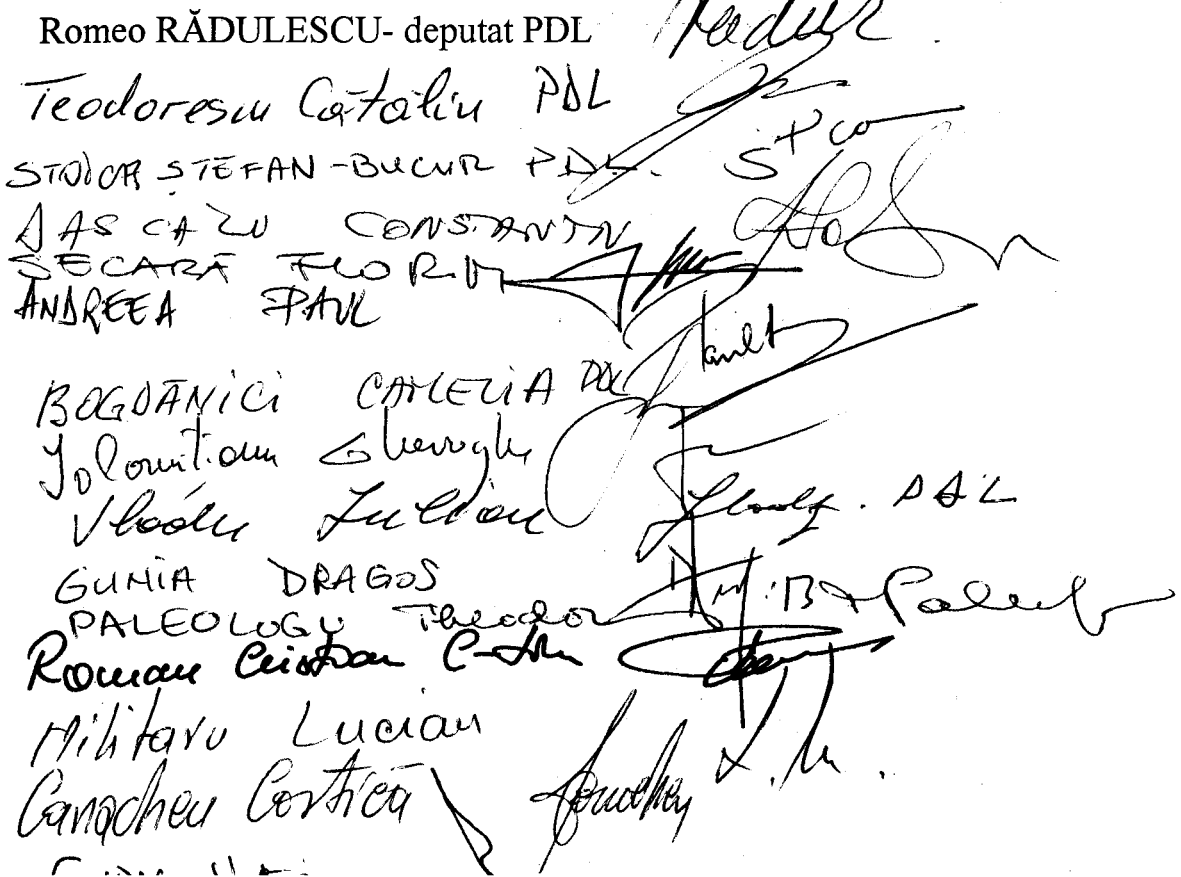 Romeo RĂDULESCU- deputat PDL
Teodorescu Cătălin PDL
STOICA ȘTEFAN-BUCUR PDL.
DASCALU CONSTANTIN
SECARĂ FLORIN
ANDREEA PAUL
BOGDĂNICI CAMELIA PDL
Ialomițianu Gheorghe
Vlădu Iulian PDL
GUNIA DRAGOS
PALEOLOGU Theodor
Roman Cristian C-tin
Militaru Lucian
Canacheu Costică